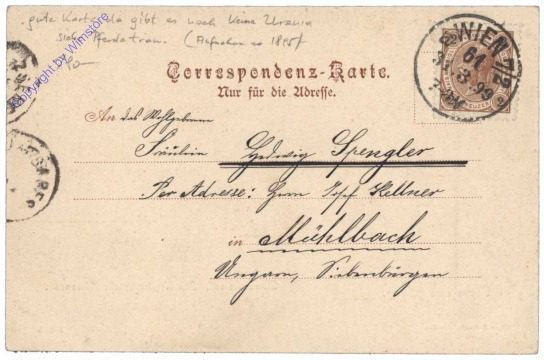 gute Karte, da gibt es noch keine Urania
siehe Pferdetram. (Aufnahme ca 1895)
Copyright by Wimstore
WIEN 7/2
61
Correspondenz-Karte.
Nur für die Adresse.
An das Wohlgeborene
Fräulein Hedwig Spengler
Per Adresse: Herrn Josef Kellner
in Mühlbach
Ungarn, Siebenbürgen